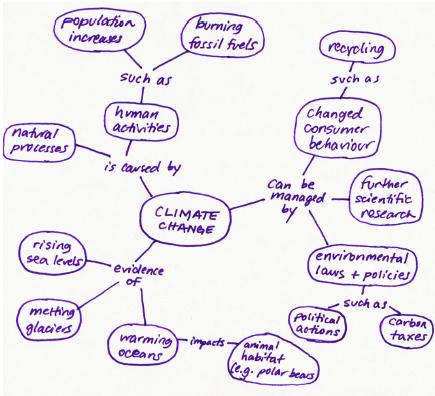 population
increases
burning
fossil fuels
such as
human
activities
natural
processes
is caused by
recycling
such as
changed
consumer
behaviour
can be
managed
by
further
scientific
research
environmental
laws + policies
such as
political
actions
carbon
taxes
CLIMATE
CHANGE
rising
sea levels
evidence
of
melting
glaciers
warming
oceans
impacts
animal
habitat
(e.g. polar bears